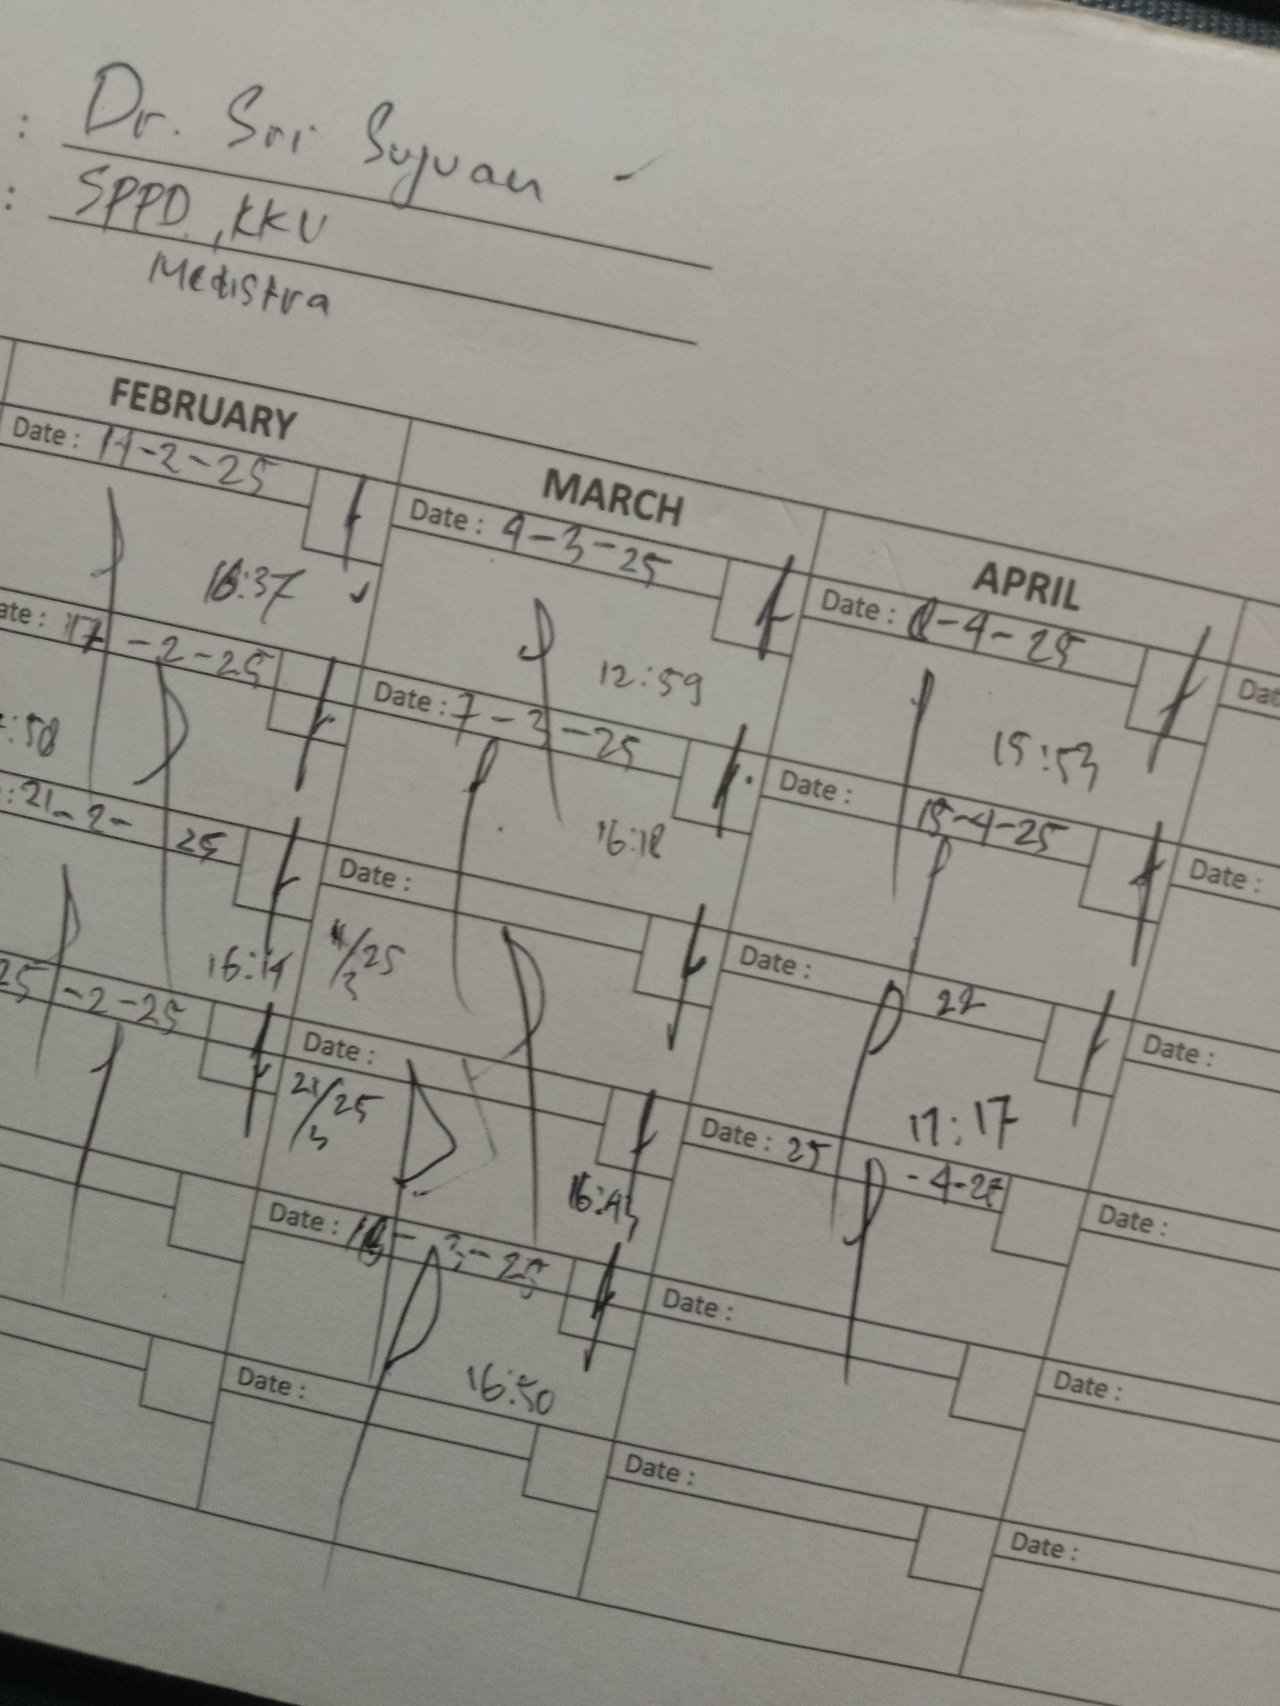 : Dr. Sri Suyuan -
: SPPD, KKV
Medistra
FEBRUARY
Date : 14-2-25
16:37
ate : 17-2-25
:58
: 21-2-25
16:14
25-2-25
MARCH
Date : 4-3-25
12:59
Date : 7-3-25
16:18
Date :
11/25
3
Date :
21/25
3
16:43
Date : - 3-25
16:50
Date :
APRIL
Date : -4-25
15:53
Date : 15-4-25
Date : 22
17:17
Date : 25-4-25
Date :
Date :
Dat
Date :
Date :
Date :
Date :
Date :